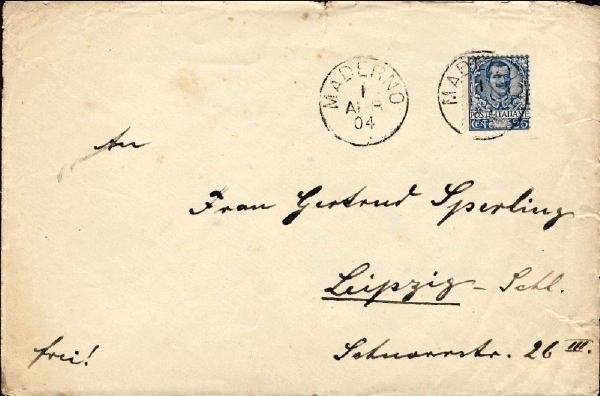 MADERNO
1
APR
04
MAD
1
POSTE ITALIANE
CENT. 25
An
Frau Gertrud Sperling
Leipzig – Schl.
frei!
Schnorrstr. 26 III.